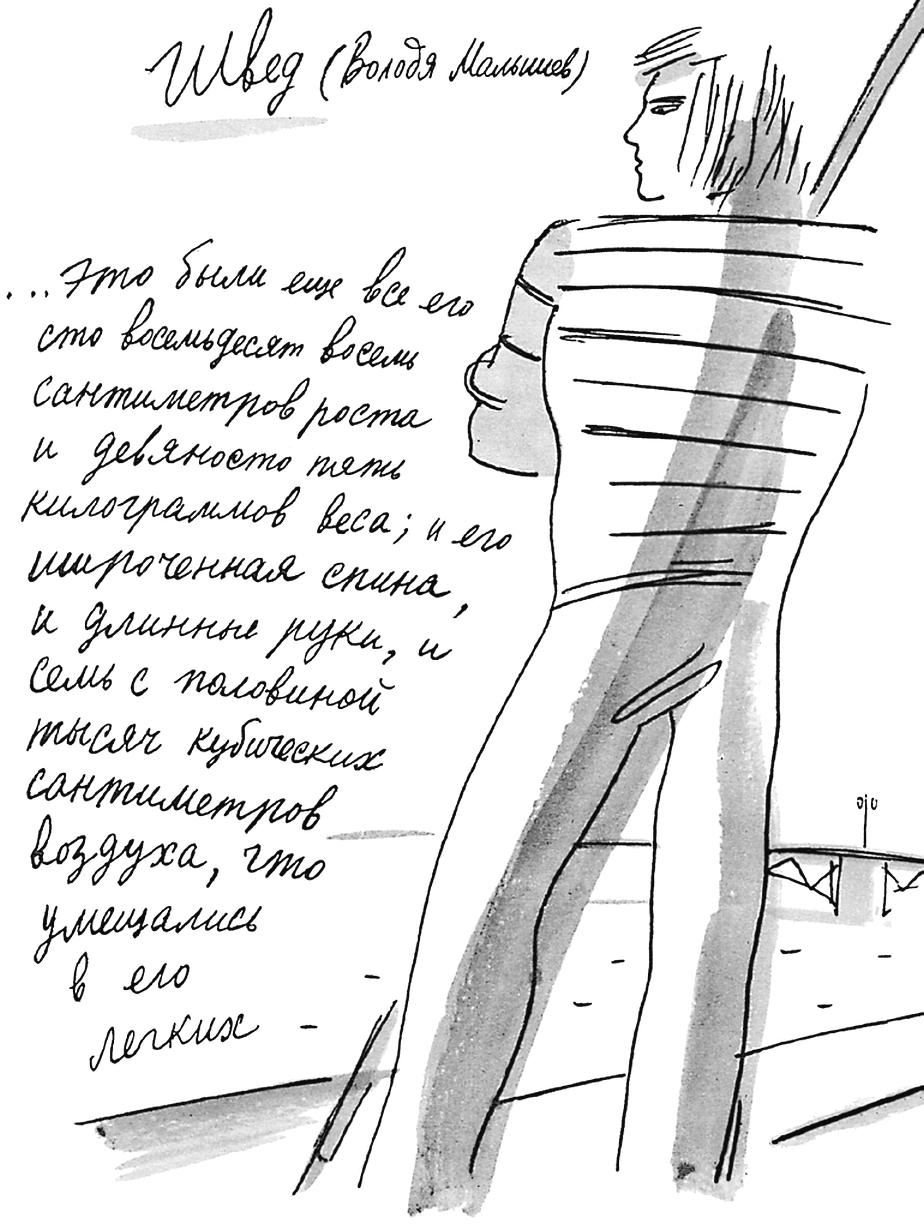 Швед (Володя Малышев)
...Это были еще все его
сто восемьдесят восемь
сантиметров роста
и девяносто пять
килограммов веса; и его
широченная спина,
и длинные руки, и
семь с половиной
тысяч кубических
сантиметров
воздуха, что
умещались
в его
легких